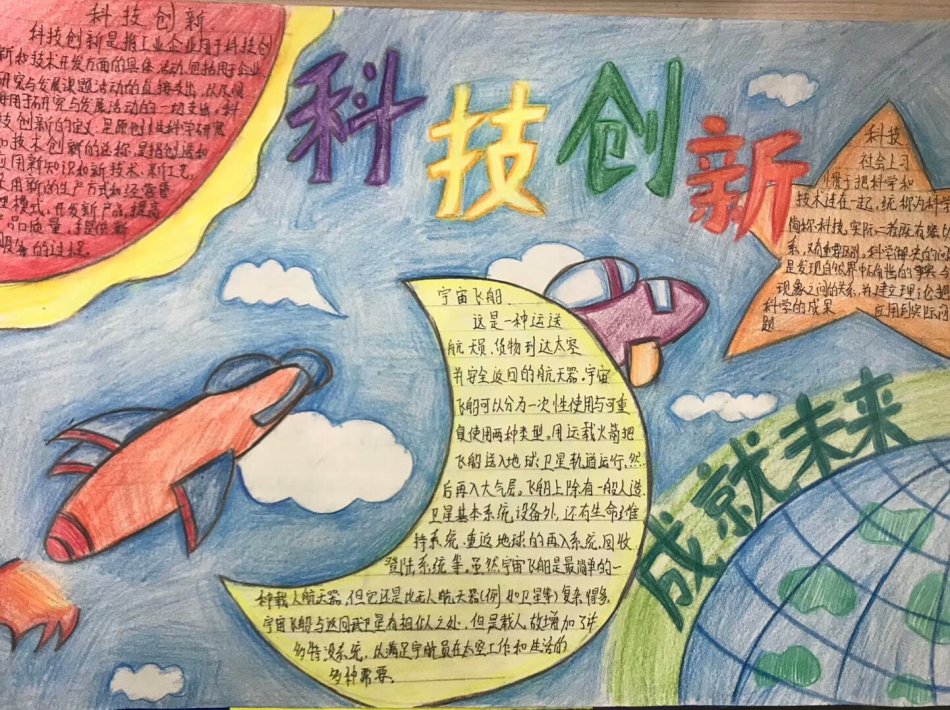 科技创新
科技创新是指工业企业用于科技创
新和技术开发方面的具体活动,包括用于企业
研究与发展课题活动的直接支出,以及
用于研究与发展活动的一切支出。科
技创新的定义是原创性科学研究
和技术创新的总称,是指创造和
应用新知识和新技术、新工艺,
采用新的生产方式和经营管
理模式,开发新产品,提高
产品质量,提供新
服务的过程.
科技创新
科技
社会上习
惯于把科学和
技术连在一起,统称为科学
简称科技,实际二者既有密切
系,又有重要区别。科学解决的问
是发现自然界中确凿的事实
现象之间的关系,并建立理论把
科学的成果 应用到实际问
题
宇宙飞船.
这是一种运送
航天员、货物到达太空
并安全返回的航天器。宇宙
飞船可以分为一次性使用与可重
复使用两种类型。用运载火箭把
飞船送入地球卫星轨道运行,然
后再入大气层。飞船上除有一般人造
卫星基本系统设备外,还有生命维
持系统、重返地球的再入系统,回收
登陆系统等。虽然宇宙飞船是最简单的一
种载人航天器,但它还是比无人航天器(例如卫星等)复杂得多.
宇宙飞船与返回式卫星有相似之处,但是载人,故增加了许
多特设系统,以满足宇航员在太空工作和生活的
多种需要.
成就未来